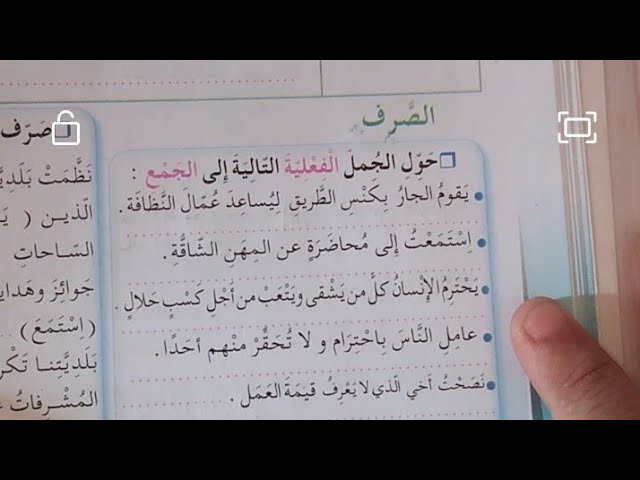 الصَّرف
حَوِّل الجُملَ الْفِعْلِيَةَ التّالِيَةَ إلى الجَمْعِ :
• يَقومُ الجارُ بِكَنْسِ الطَّريقِ لِيُساعِدَ عُمّالَ النَّظافَة .
• اِسْتَمَعْتُ إلى مُحاضَرَةٍ عن المِهَنِ الشّاقَّةِ .
• يَحْتَرِمُ الإنْسانُ كلَّ من يَشْقى ويَتْعَبْ من أجْلِ كَسْبٍ حَلالٍ .
• عامِلِ النَّاسَ بِاحْتِرَام و لا تُحَقِّرْ منْهم أحَدًا .
• نَصَحْتُ أخي الّذي لا يَعْرِفُ قيمَةَ العَمَل .
صَرِّف
نَظَّمَتْ بَلَدِيَّ
الّذين ( يَ
السّاحاتِ
جَوائِزَ وهَدايا
(اِسْتَمَعَ)
بَلَدِيَّتنا تَكْر
المُشْرِفاتُ